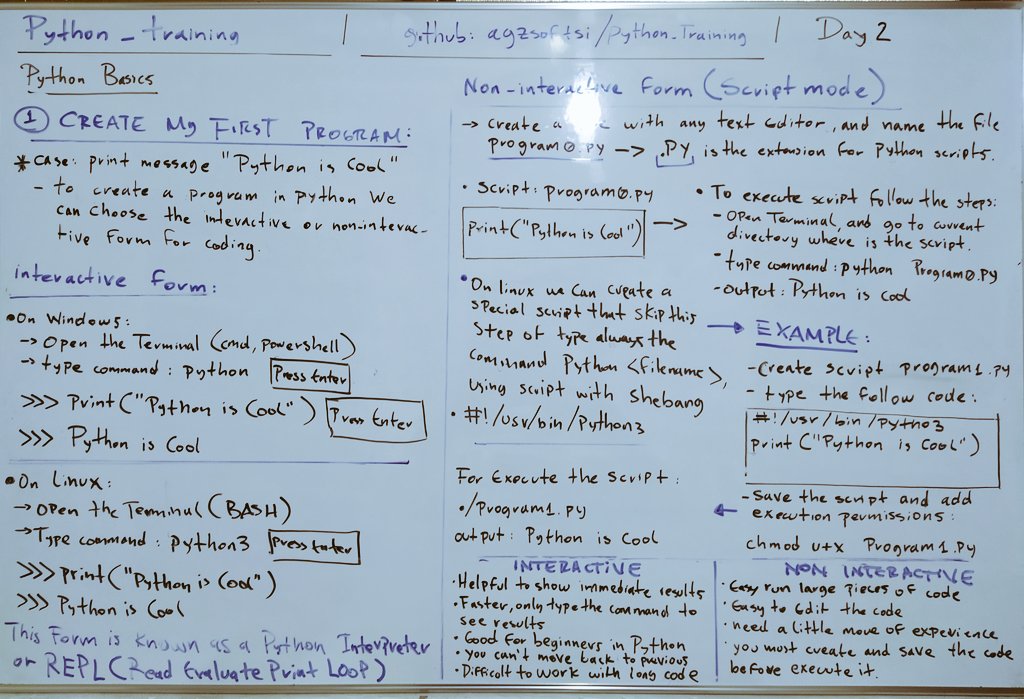 Python_training | github: agzsoftsi/Python_Training | Day 2
Python Basics
① CREATE My FIRST PROGRAM:
* case: print message "Python is Cool"
- to create a program in python We
can choose the interactive or non-interac-
tive Form for coding.
interactive Form:
• On Windows:
→ Open the Terminal (cmd, powershell)
→ type command: python Press Enter
>>> print("Python is Cool") Press Enter
>>> Python is Cool
• On Linux:
→ Open the Terminal (BASH)
→ Type command: python3 Press Enter
>>> print("Python is Cool")
>>> Python is Cool
This Form is Known as a Python Interpreter
or REPL (Read Evaluate Print Loop)
Non-interactive Form (Script mode)
→ create a with any text Editor, and name the file
program0.py → .PY is the extension for Python scripts.
• Script: program0.py
print("Python is Cool") →
• To execute script follow the steps:
- Open Terminal, and go to current
directory where is the script.
- type command: python Program0.py
- output: Python is cool
• On linux we can create a
special script that skip this
step of type always the
command Python <filename>,
using script with shebang
• #!/usr/bin/Python3
→ EXAMPLE:
- Create script program1.py
- type the follow code:
#!/usr/bin/python3
print ("Python is Cool")
- Save the script and add
← execution permissions:
chmod u+x Program1.py
For Execute the Script:
./Program1.py
output: Python is Cool
INTERACTIVE
• Helpful to show immediate results
• Faster, only type the command to
see results
• Good for beginners in Python
• you can't move back to previous
• Difficult to work with long code
NON INTERACTIVE
• Easy run large pieces of code
• Easy to Edit the code
• need a little more of experience
• you must create and save the code
before execute it.